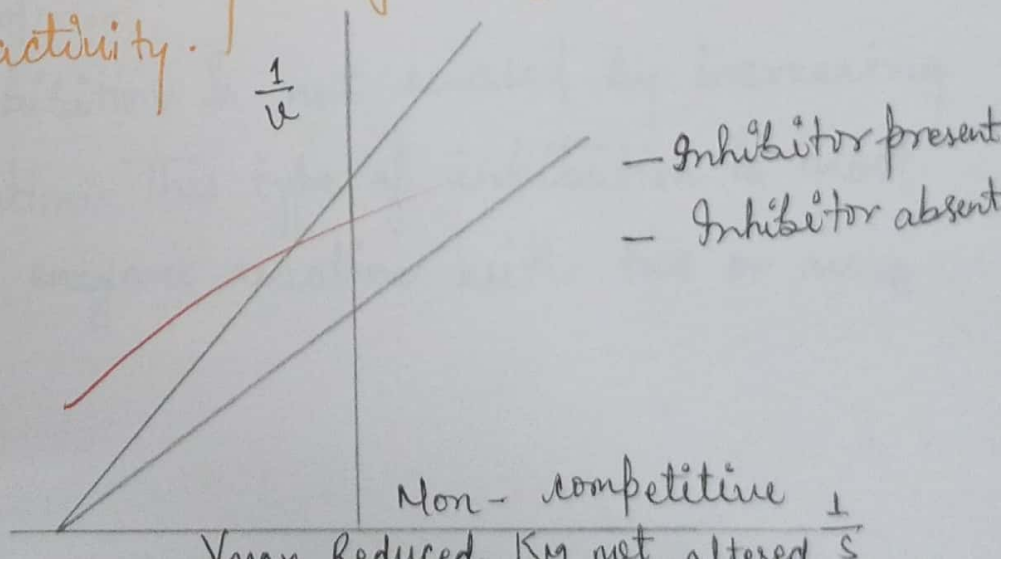 activity.
1/v
– Inhibitor present
– Inhibitor absent
Non - competitive
1/S
Vmax Reduced Km not altered